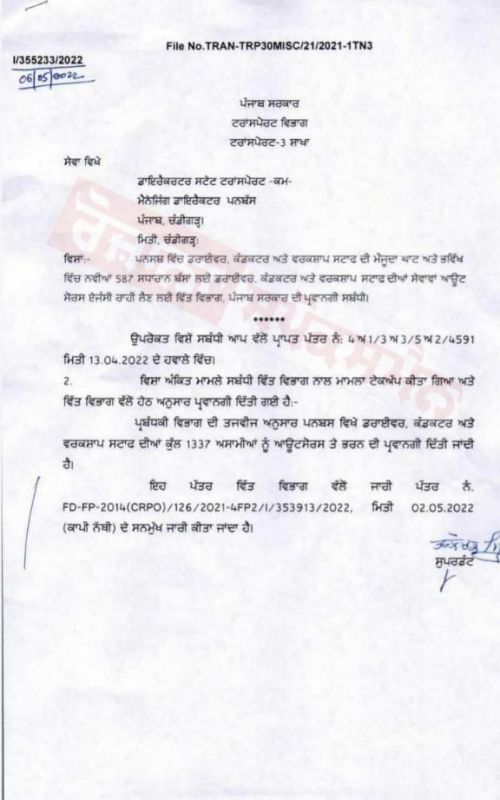 File No.TRAN-TRP30MISC/21/2021-1TN3
I/355233/2022
06/05/2022
ਪੰਜਾਬ ਸਰਕਾਰ
ਟਰਾਂਸਪੋਰਟ ਵਿਭਾਗ
ਟਰਾਂਸਪੋਰਟ-3 ਸ਼ਾਖਾ
ਸੇਵਾ ਵਿਖੇ
ਡਾਇਰੈਕਰਟਰ ਸਟੇਟ ਟਰਾਂਸਪੋਰਟ -ਕਮ-
ਮੈਨੇਜਿੰਗ ਡਾਇਰੈਕਟਰ ਪਨਬੱਸ
ਪੰਜਾਬ, ਚੰਡੀਗੜ੍ਹ।
ਮਿਤੀ, ਚੰਡੀਗੜ੍ਹ:
ਵਿਸ਼ਾ:- ਪਨਸਬ ਵਿੱਚ ਡਰਾਈਵਰ, ਕੰਡਕਟਰ ਅਤੇ ਵਰਕਸ਼ਾਪ ਸਟਾਫ ਦੀ ਮੌਜੂਦਾ ਘਾਟ ਅਤੇ ਭਵਿੱਖ
ਵਿੱਚ ਨਵੀਆਂ 587 ਸਧਾਰਾਨ ਬੱਸ ਲਈ ਡਰਾਈਵਰ, ਕੰਡਕਟਰ ਅਤੇ ਵਰਕਸ਼ਾਪ ਸਟਾਫ ਦੀਆਂ ਸੇਵਾਵਾਂ ਆਊਟ
ਸੋਰਸ ਏਜੰਸੀ ਰਾਹੀ ਲੈਣ ਲਈ ਵਿੱਤ ਵਿਭਾਗ, ਪੰਜਾਬ ਸਰਕਾਰ ਦੀ ਪ੍ਰਵਾਨਗੀ ਸਬੰਧੀ।
******
ਉਪਰੋਕਤ ਵਿਸ਼ੇ ਸਬੰਧੀ ਆਪ ਵੱਲੋਂ ਪ੍ਰਾਪਤ ਪੱਤਰ ਨੰ: 4 ਅ 1/3 ਅ 3/5 ਅ 2/4591
ਮਿਤੀ 13.04.2022 ਦੇ ਹਵਾਲੇ ਵਿੱਚ।
2. ਵਿਸ਼ਾ ਅੰਕਿਤ ਮਾਮਲੇ ਸਬੰਧੀ ਵਿੱਤ ਵਿਭਾਗ ਨਾਲ ਮਾਮਲਾ ਟੇਕਅੱਪ ਕੀਤਾ ਗਿਆ ਅਤੇ
ਵਿੱਤ ਵਿਭਾਗ ਵੱਲੋਂ ਹੇਠ ਅਨੁਸਾਰ ਪ੍ਰਵਾਨਗੀ ਦਿੱਤੀ ਗਈ ਹੈ:-
ਪ੍ਰਬੰਧਕੀ ਵਿਭਾਗ ਦੀ ਤਜਵੀਜ ਅਨੁਸਾਰ ਪਨਬਸ ਵਿਖੇ ਡਰਾਈਵਰ, ਕੰਡਕਟਰ ਅਤੇ
ਵਰਕਸ਼ਾਪ ਸਟਾਫ ਦੀਆਂ ਕੁੱਲ 1337 ਅਸਾਮੀਆਂ ਨੂੰ ਆਊਟਸੋਰਸ ਤੇ ਭਰਨ ਦੀ ਪ੍ਰਵਾਨਗੀ ਦਿੱਤੀ ਜਾਂਦੀ
ਹੈ।
ਇਹ ਪੱਤਰ ਵਿੱਤ ਵਿਭਾਗ ਵੱਲੋਂ ਜਾਰੀ ਪੱਤਰ ਨੰ.
FD-FP-2014(CRPO)/126/2021-4FP2/I/353913/2022, ਮਿਤੀ 02.05.2022
(ਕਾਪੀ ਨੱਥੀ) ਦੇ ਸਨਮੁੱਖ ਜਾਰੀ ਕੀਤਾ ਜਾਂਦਾ ਹੈ।
ਸੁਪਰਡੰਟ